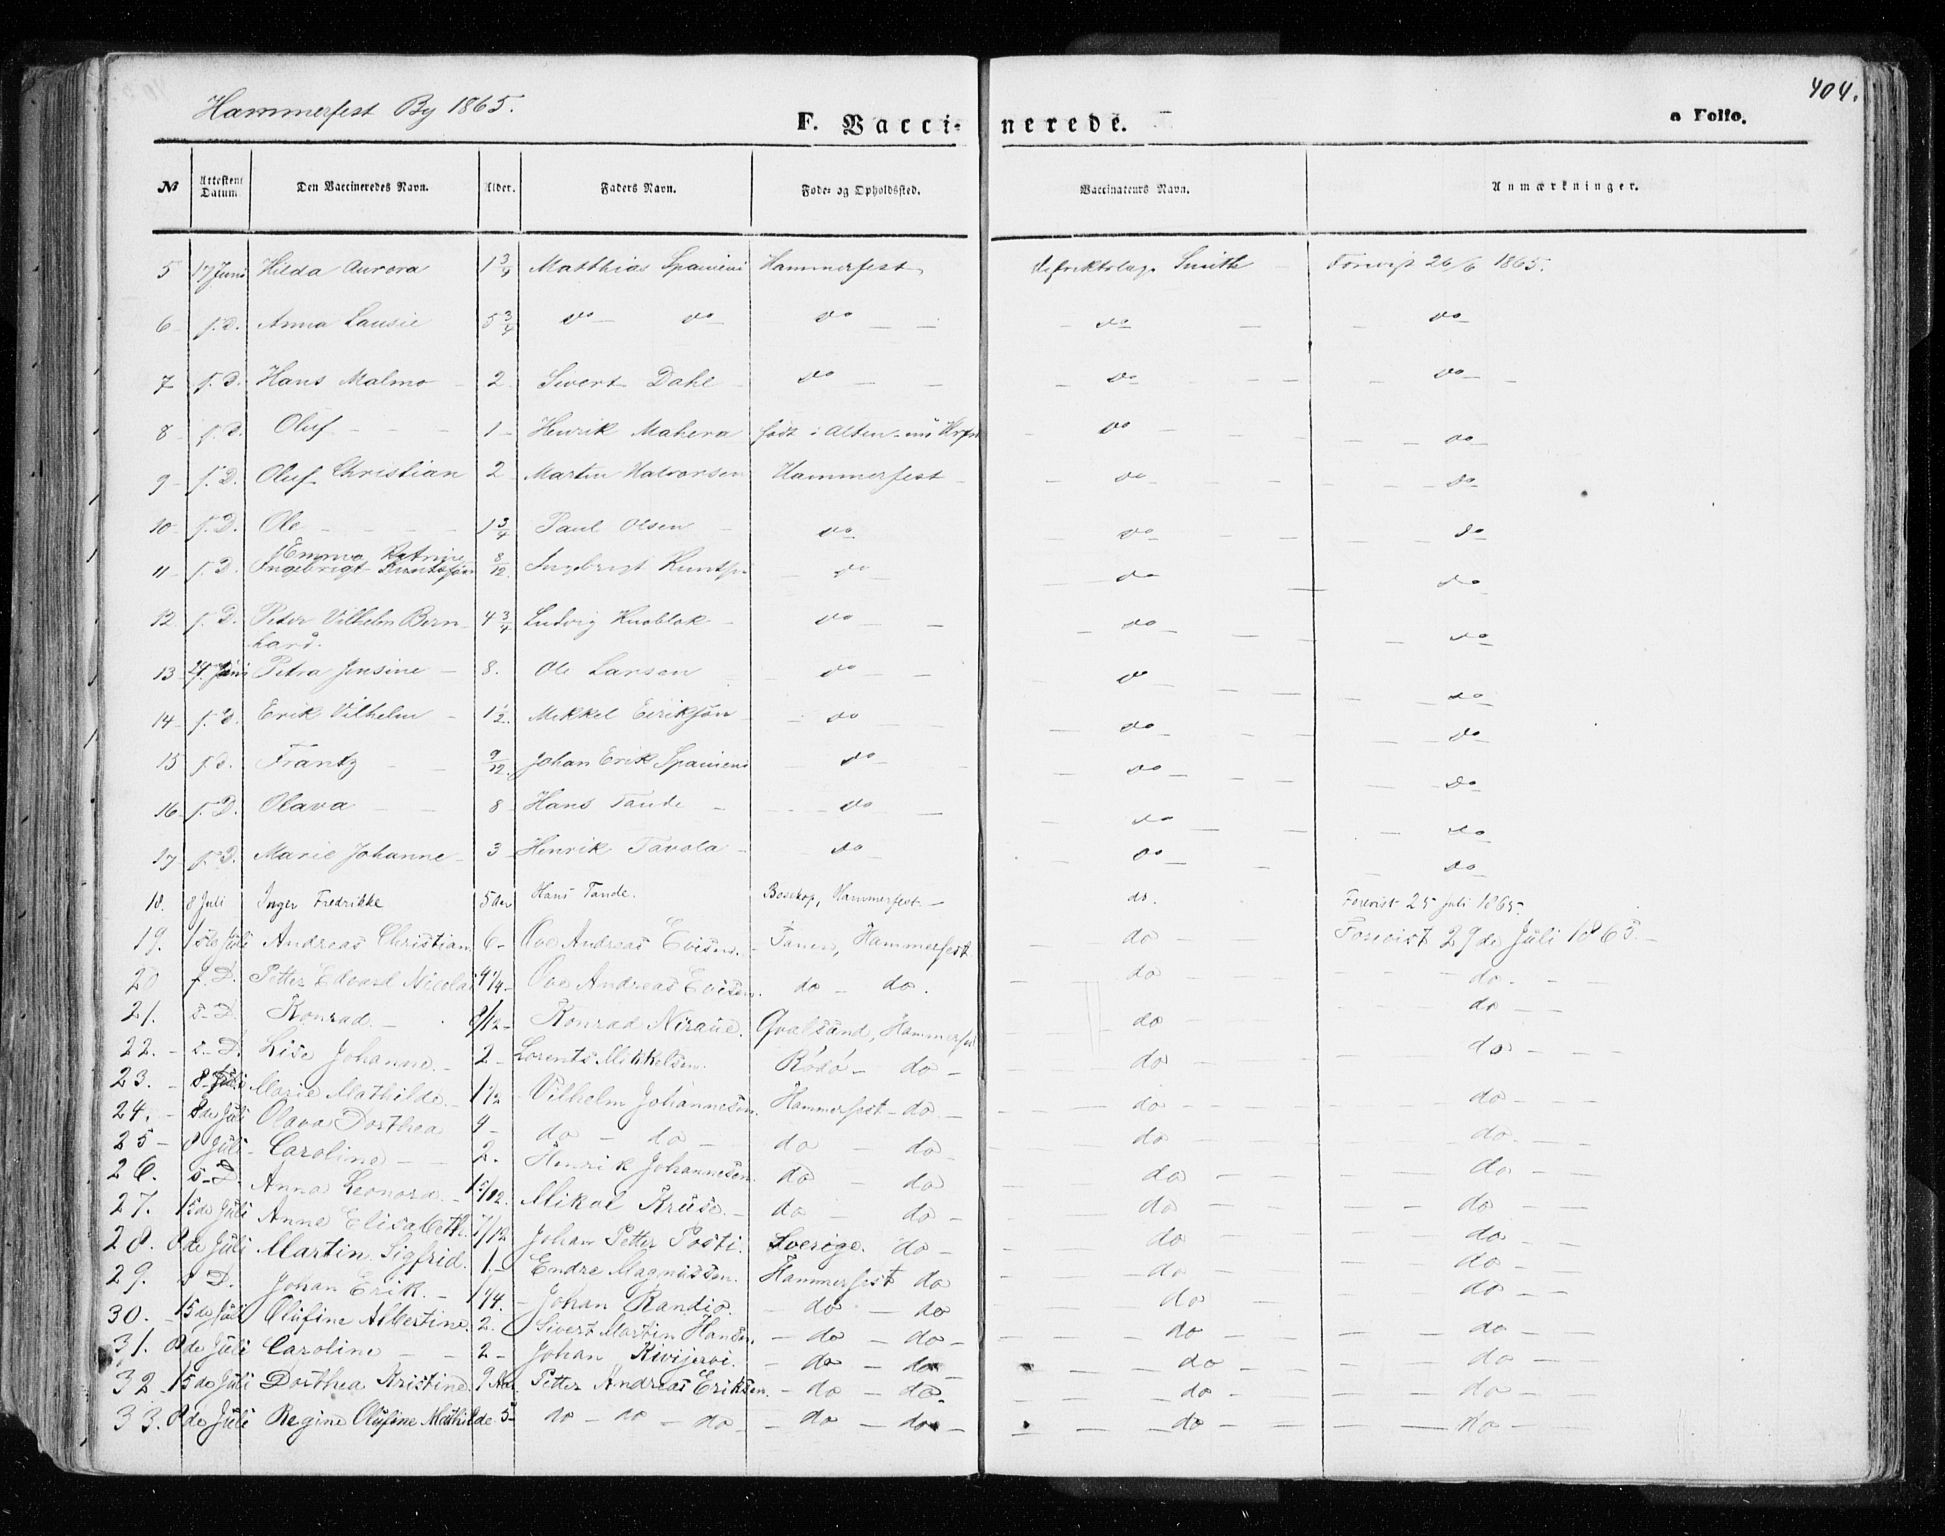 404.
Hammerfest By 1865.
F. Vaccinerede.
a Folio.
No Attestens Datum. Den Vaccineredes Navn. Alder. Faders Navn. Føde- og Opholdssted. Vaccinateurs Navn. Anmærkninger.
5 17 Juni Hilda Aurora 1 3/4 Matthias Hammerfest Smith Forevist 26/6 1865.
6 - s. D. Anna 5 3/4 do do do do do
7 s. D. Hans Malmo 2 Sivert Dahl do do do
8 - s. D. Oluf 1 - Henrik Mahera født i Alten do do
9 - s. D. Oluf Christian 2 Martin Halvorsen Hammerfest do do
10 - s. D. Ole 1 3/4 Paul Olsen do do do
Emma
11 - s. D. Ingebrigt 8/12 Ingebrigt do do do
12 s. D. Peter Vilhelm Bern- 4 3/4 Ludvig Knoblok do do do
hard.
13 24 Juni Petra Jensine 8. Ole Larsen do do do
14 - s. D. Erik Vilhelm 1 1/2 Mikkel do do do
15 s. D. Frantz 9/12 Johan Erik do do do
16 - s. D. Olava 8 Hans Tande do do do
17 s. D. Marie Johanne 3 Henrik Tavola do do do
18. 8 Juli Inger Fredrikke 5 Aar Hans Tande. Bosekop, Hammerfest do. Forevist 25 Juli 1865.
19. 15 de Juli Andreas Christian 6 - Ove Andreas Evisen. Tanen, Hammerfest do Forevist 29 de Juli 1865.
20 s. D. Petter Edvard Nicolai 4 1/4 - Ove Andreas Evisen. do - do. do do
21. s - D. Konrad 8/12 - Konrad Niraue. Qvalsund, Hammerfest do do
22. - s - D. Lise Johanne 2 - Lorents Mikkelsen. Rösö - do - do do
23. - 8 - Juli Marie Mathilde 1 1/2 - Vilhelm Johannesen. Hammerfest - do do do
24. - 8 de Juli Olava Dorthea 9 - do - do - do - do do do
25 - 8 Juli Caroline 2. Henrik Johannesen. do - do do do
26. s - D. Anna Leonora Mikal Kruse - do - do - do do
27. 15 de Juli Anne Elisabeth 7/12 Johan Petter Posti. Sverige. do - do do
28. 8 de Juli Martin Sigfrid. 1 - Endre Magnussen. Hammerfest do do do
29. s D. Johan Erik. - 1 1/4. - Johan Randio. - do - do do do
30. 15 de Juli Olufine Albertine 2. Sivert Martin Hansen. - do - do - do do
31. 8 de Juli Caroline 2 - Johan Kivijervi. - do - do do do
32 - 15 de Juli Dorthea Kristine 9 Aar Petter Andreas Eriksen. - do - do do do
33. 8 de Juli Regine Olufine Mathilde 5 - do - do - do - do - do - do do